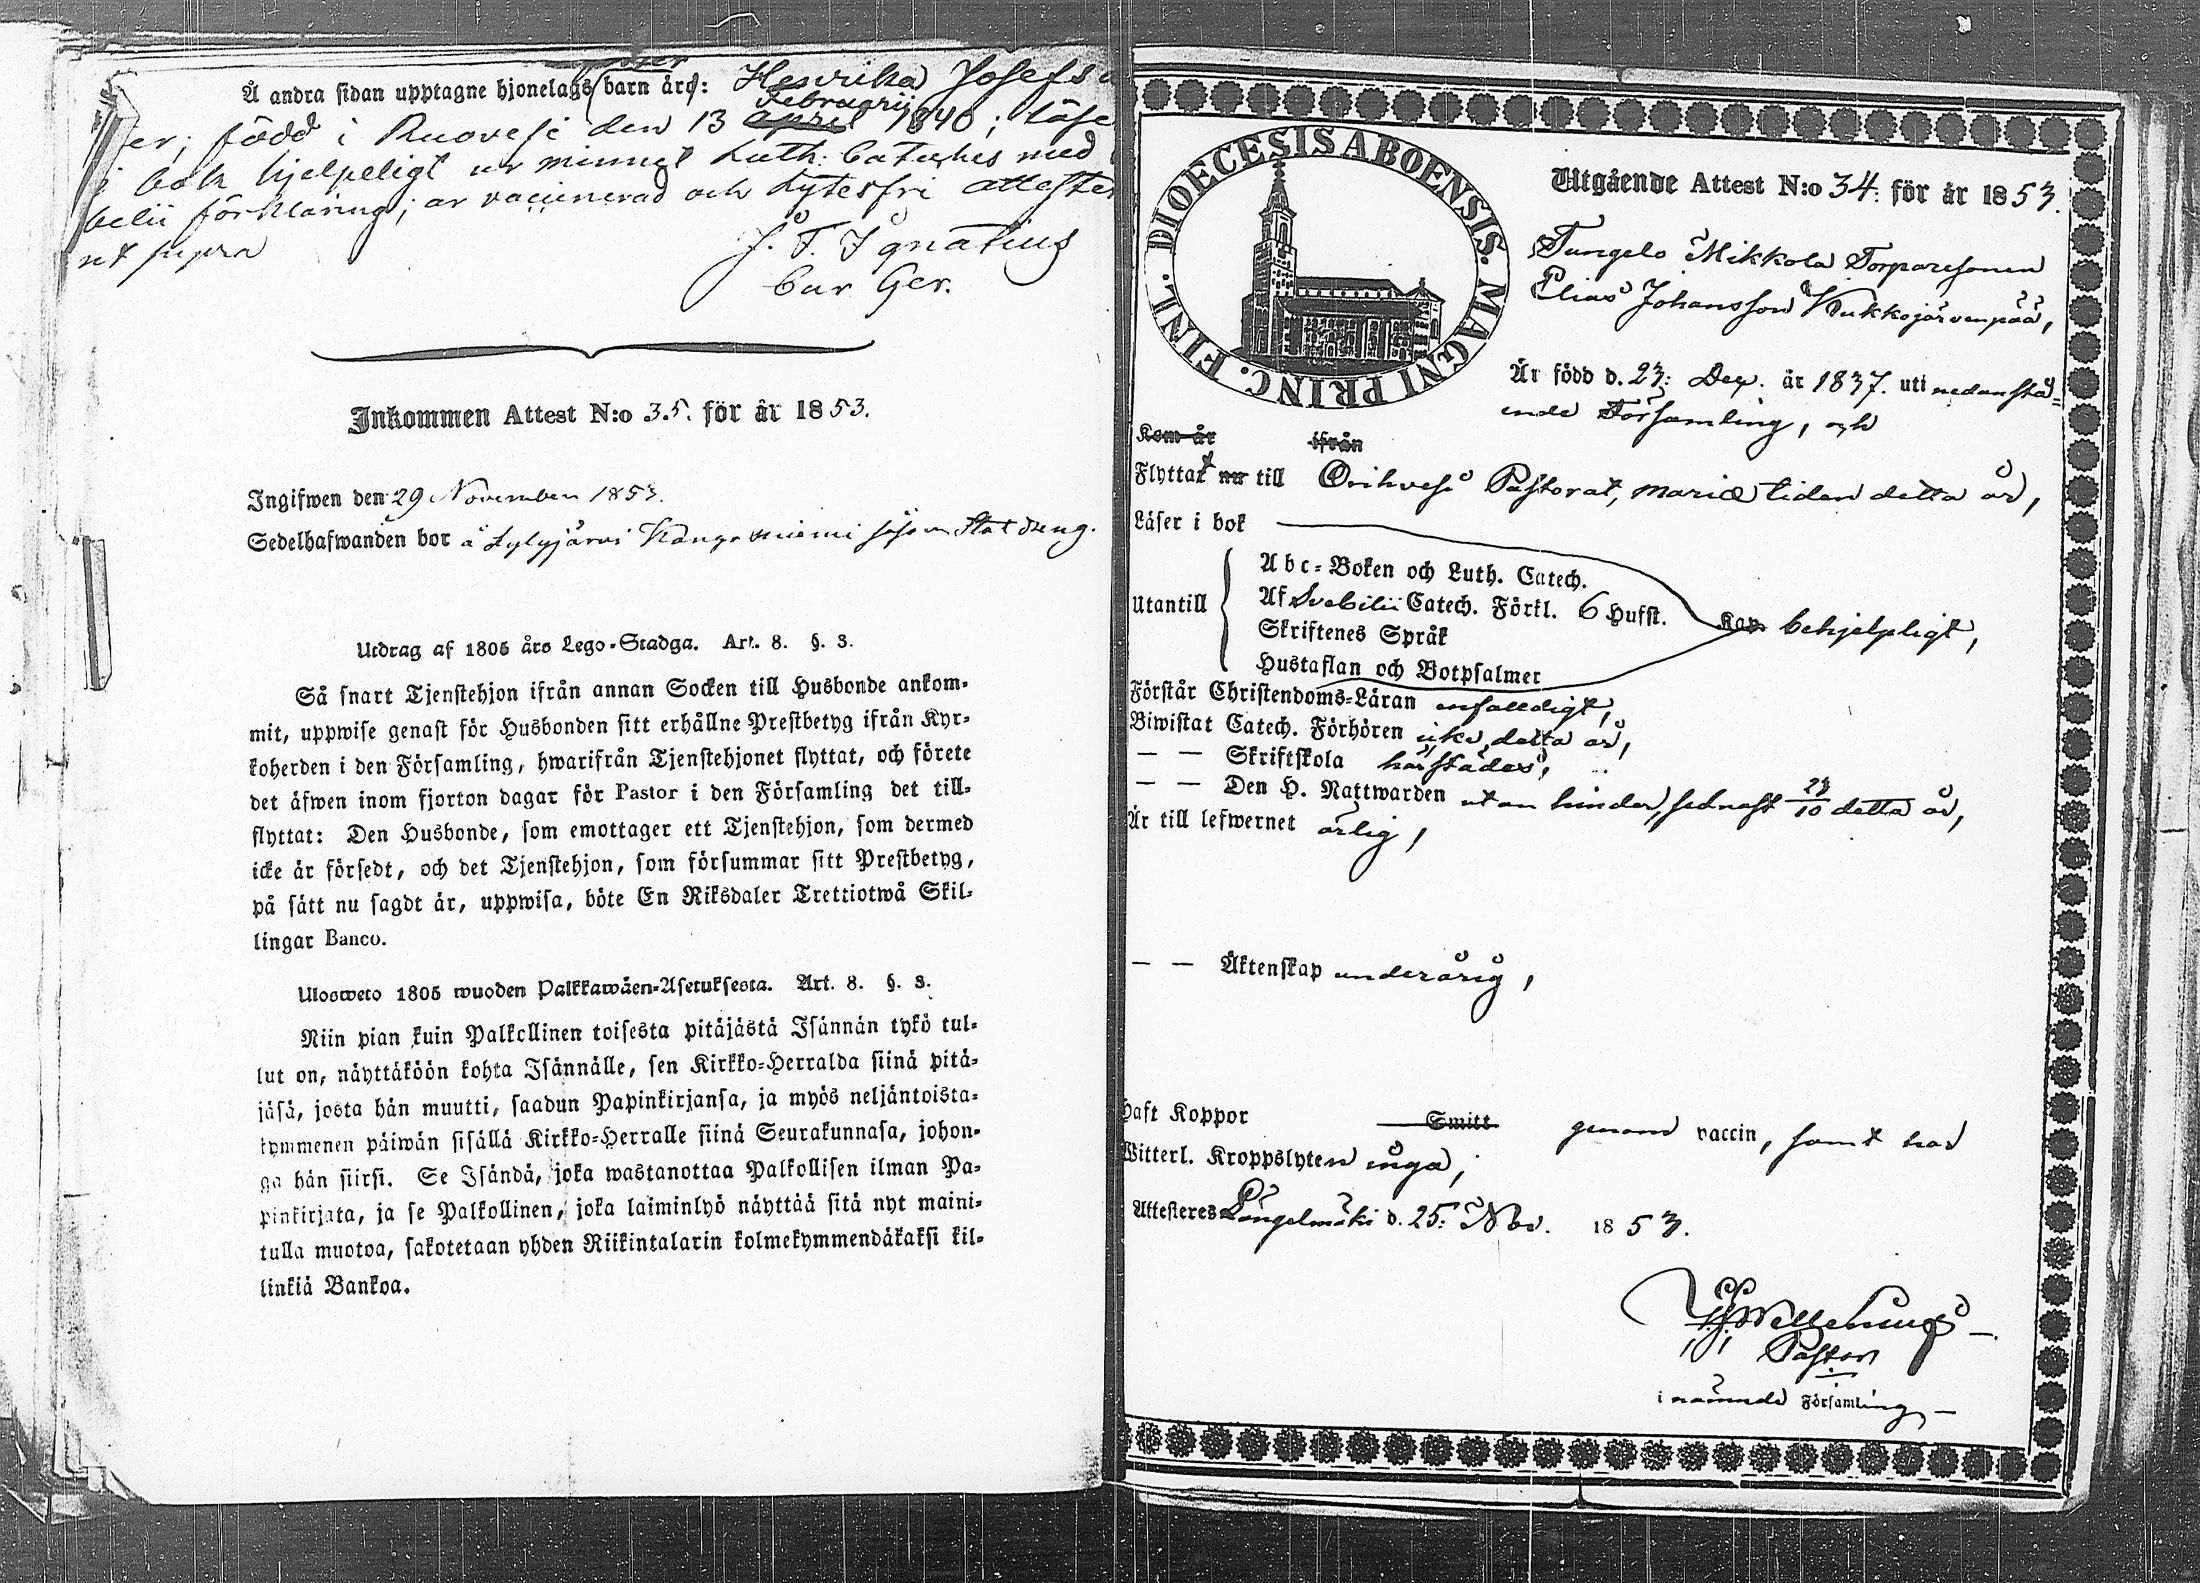 Å andra sidan upptagne hjonelags barn äro: Henrika Josefs
er, född i Ruovesi den 13 april Februarii 1840; läse
i bok hjelpeligt ur minnet Luth: Cateches med
belii förklaring; är vaccinerad och Lytesfri attester
ut supra
J. F. Ignatius
Cur Ger.
Inkommen Attest N:o 35. för år 1853.
Ingifwen den 29 November 1853.
Sedelhafwanden bor å Lylyjärvi Kangasniemi såsom Statdreng.
Utdrag af 1805 års Lego-Stadga. Art. 8. §. 3.
Så snart Tjenstehjon ifrån annan Socken till Husbonde ankom-
mit, uppwise genast för Husbonden sitt erhållne Prestbetyg ifrån Kyr-
koherden i den Församling, hwarifrån Tjenstehjonet flyttat, och förete
det äfwen inom fjorton dagar för Pastor i den Församling det till-
flyttat: Den Husbonde, som emottager ett Tjenstehjon, som dermed
icke är försedt, och det Tjenstehjon, som försummar sitt Prestbetyg,
på sätt nu sagdt är, uppwisa, böte En Riksdaler Trettiotwå Skil-
lingar Banco.
Ulosweto 1805 wuoden Palkkawäen-Asetuksesta. Art. 8. §. 3.
Niin pian kuin Palkollinen toisesta pitäjästä Isännän tykö tul-
lut on, näyttäköön kohta Isännälle, sen Kirkko-Herralda siinä pitä-
jäsä, josta hän muutti, saadun Papinkirjansa, ja myös neljäntoista-
kymmenen päiwän sisällä Kirkko-Herralle siinä Seurakunnasa, johon-
ga hän siirsi. Se Isändä, joka wastanottaa Palkollisen ilman Pa-
pinkirjata, ja se Palkollinen, joka laiminlyö näyttää sitä nyt maini-
tulla muotoa, sakotetaan yhden Riikintalarin kolmekymmendäkaksi kil-
linkiä Bankoa.
DIOECESIS ABOENSIS. MAGNI PRINC. FINL.
Utgående Attest N:o 34. för år 1853.
Tungelo Mikkola Torparesonen
Elias Johansson Kukkojärvenpää,
Är född d. 23: Dec. år 1837. uti nedanstå-
ende Församling, och
Kom år ifrån
Flyttar nu till Orihvesi Pastorat, mariæ tiden detta år,
Läser i bok
Abc-Boken och Luth. Catech.
Utantill Af Svebilii Catech. Förkl. 6 Hufst. Kap behjelpligt,
Skriftenes Språk
Hustaflan och Botpsalmer
Förstår Christendoms-Läran enfalldigt,
Biwistat Catech. Förhören icke detta år,
— — Skriftskola härstädes,
— — Den H. Nattwarden utan hinder, sednast 23/10 detta år,
Är till lefwernet ärlig,
— — Äktenskap underårig,
Haft Koppor Smitt genom vaccin, samt har
Witterl. Kroppslyten inga;
Attesteras Längelmäki d. 25: Nov. 1853.
Pastor
i nämnde Församling